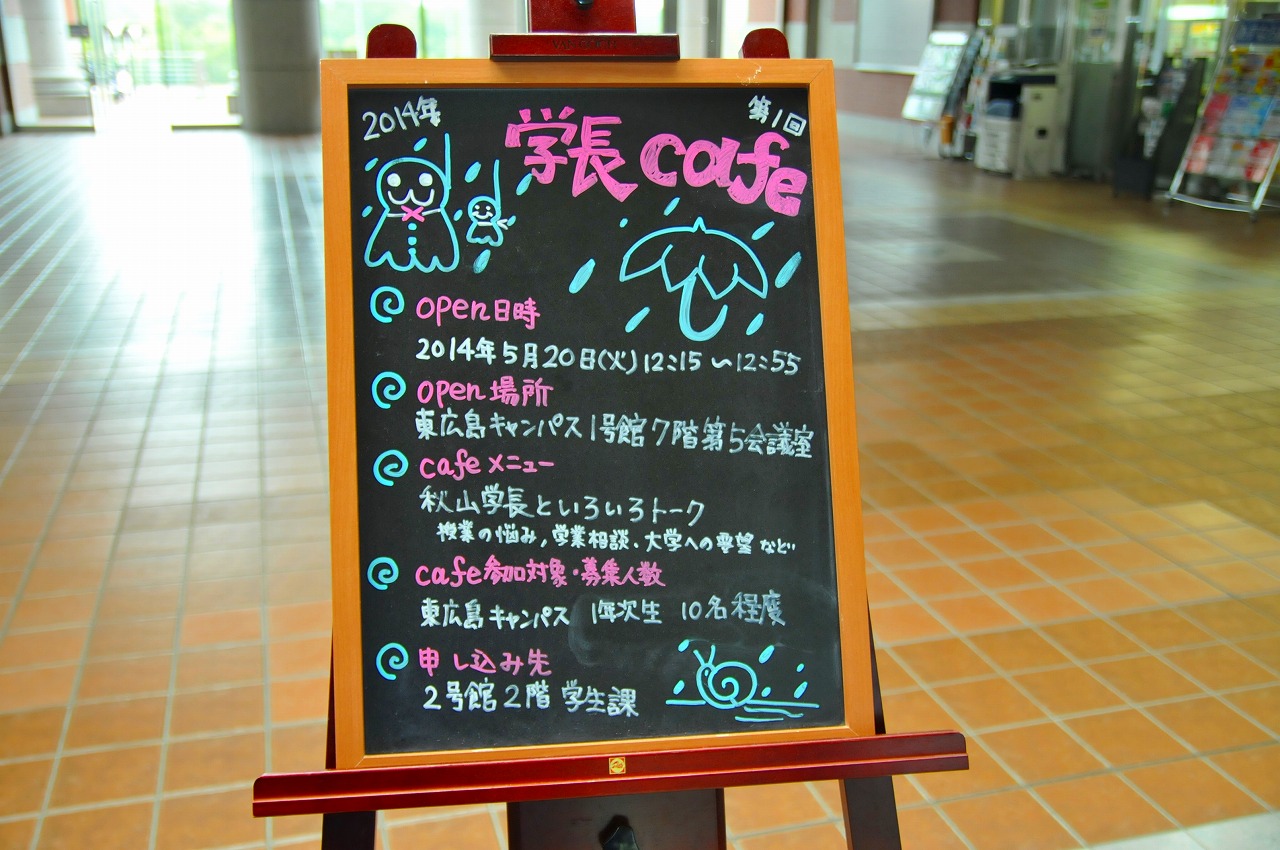 2014年
第1回
学長cafe
open日時
2014年5月20日(火)12:15〜12:55
open場所
東広島キャンパス1号館7階第5会議室
cafeメニュー
秋山学長といろいろトーク
授業の悩み,学業相談・大学への要望など
cafe参加対象・募集人数
東広島キャンパス 1年次生 10名程度
申し込み先
2号館2階 学生課